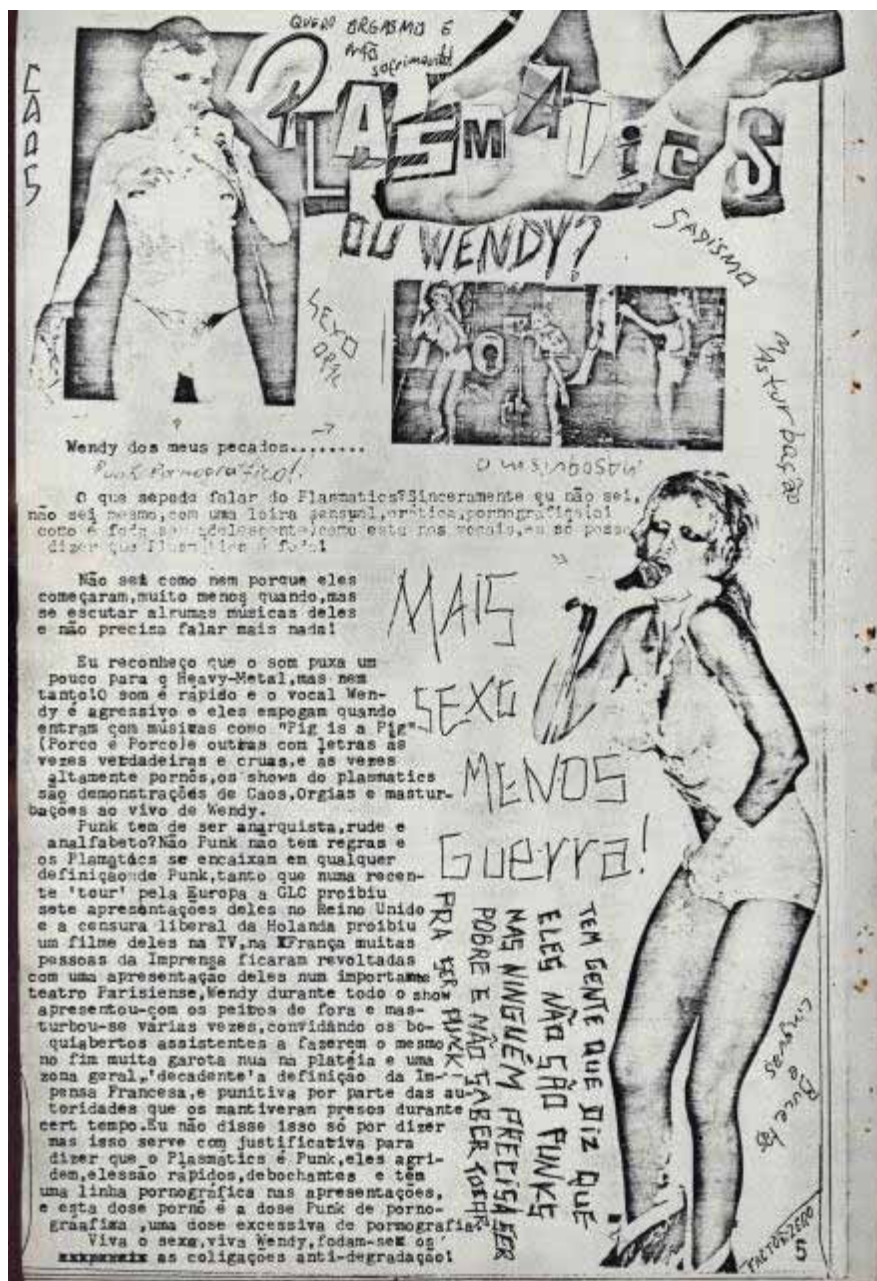 CAOS
QUERO ORGASMO E
NÃO
sofrimento!
PLASMATICS
OU WENDY?
SADISMO
SEXO
ORAL
MASTURBAÇÃO
Wendy dos meus pecados........
Punk Pornográfico!.
MASOQUISMO
O que sepode falar do Plasmatics?Sinceramente eu não sei,
não sei mesmo,com uma loira sensual,erótica,pornografica!
como é foda ser adolescente,como esta nos vocais,eu só posso
dizer que Plasmatics é foda!
Não sei como nem porque eles
começaram,muito menos quando,mas
se escutar algumas músicas deles
e não precisa falar mais nada!
Eu reconheço que o som puxa um
pouco para o Heavy-Metal,mas nem
tanto!O som é rápido e o vocal Wen-
dy é agressivo e eles empogam quando
entram com músicas como "Pig is a Pig"
(Porco é Porco)e outras com letras as
vezes verdadeiras e cruas,e as vezes
altamente pornôs,os shows do plasmatics
são demonstrações de Caos,Orgias e mastur-
bações ao vivo de Wendy.
Punk tem de ser anarquista,rude e
analfabeto?Não Punk não tem regras e
os Plamatics se encaixam em qualquer
definição de Punk,tanto que numa recen-
te 'tour' pela Europa a GLC proibiu
sete apresentações deles no Reino Unido
e a censura liberal da Holanda proibiu
um filme deles na TV,na França muitas
pessoas da Imprensa ficaram revoltadas
com uma apresentação deles num importante
teatro Parisiense,Wendy durante todo o show
apresentou-com os peitos de fora e mas-
turbou-se várias vezes,convidando os bo-
quiabertos assistentes a fazerem o mesmo
no fim muita garota nua na platéia e uma
zona geral,'decadente'a definição da Im-
pensa Francesa,e punitiva por parte das au-
toridades que os mantiveram presos durante
cert tempo.Eu não disse isso só por dizer
mas isso serve com justificativa para
dizer que o Plasmatics é Punk,eles agri-
dem,elessão rápidos,debochantes e têm
uma linha pornográfica nas apresentações,
e esta dose pornô é a dose Punk de porno-
graafima ,uma dose excessiva de pormografia!
Viva o sexo,viva Wendy,fodam-sem os
as coligações anti-degradação!
MAIS
SEXO
MENOS
Guerra!
TEM GENTE QUE DIZ QUE
ELES NÃO SÃO PUNKS
MAS NINGUÉM PRECISA SER
POBRE E NÃO SABER TOCAR
PRA SER PUNK!
FACTOR ZERO
5